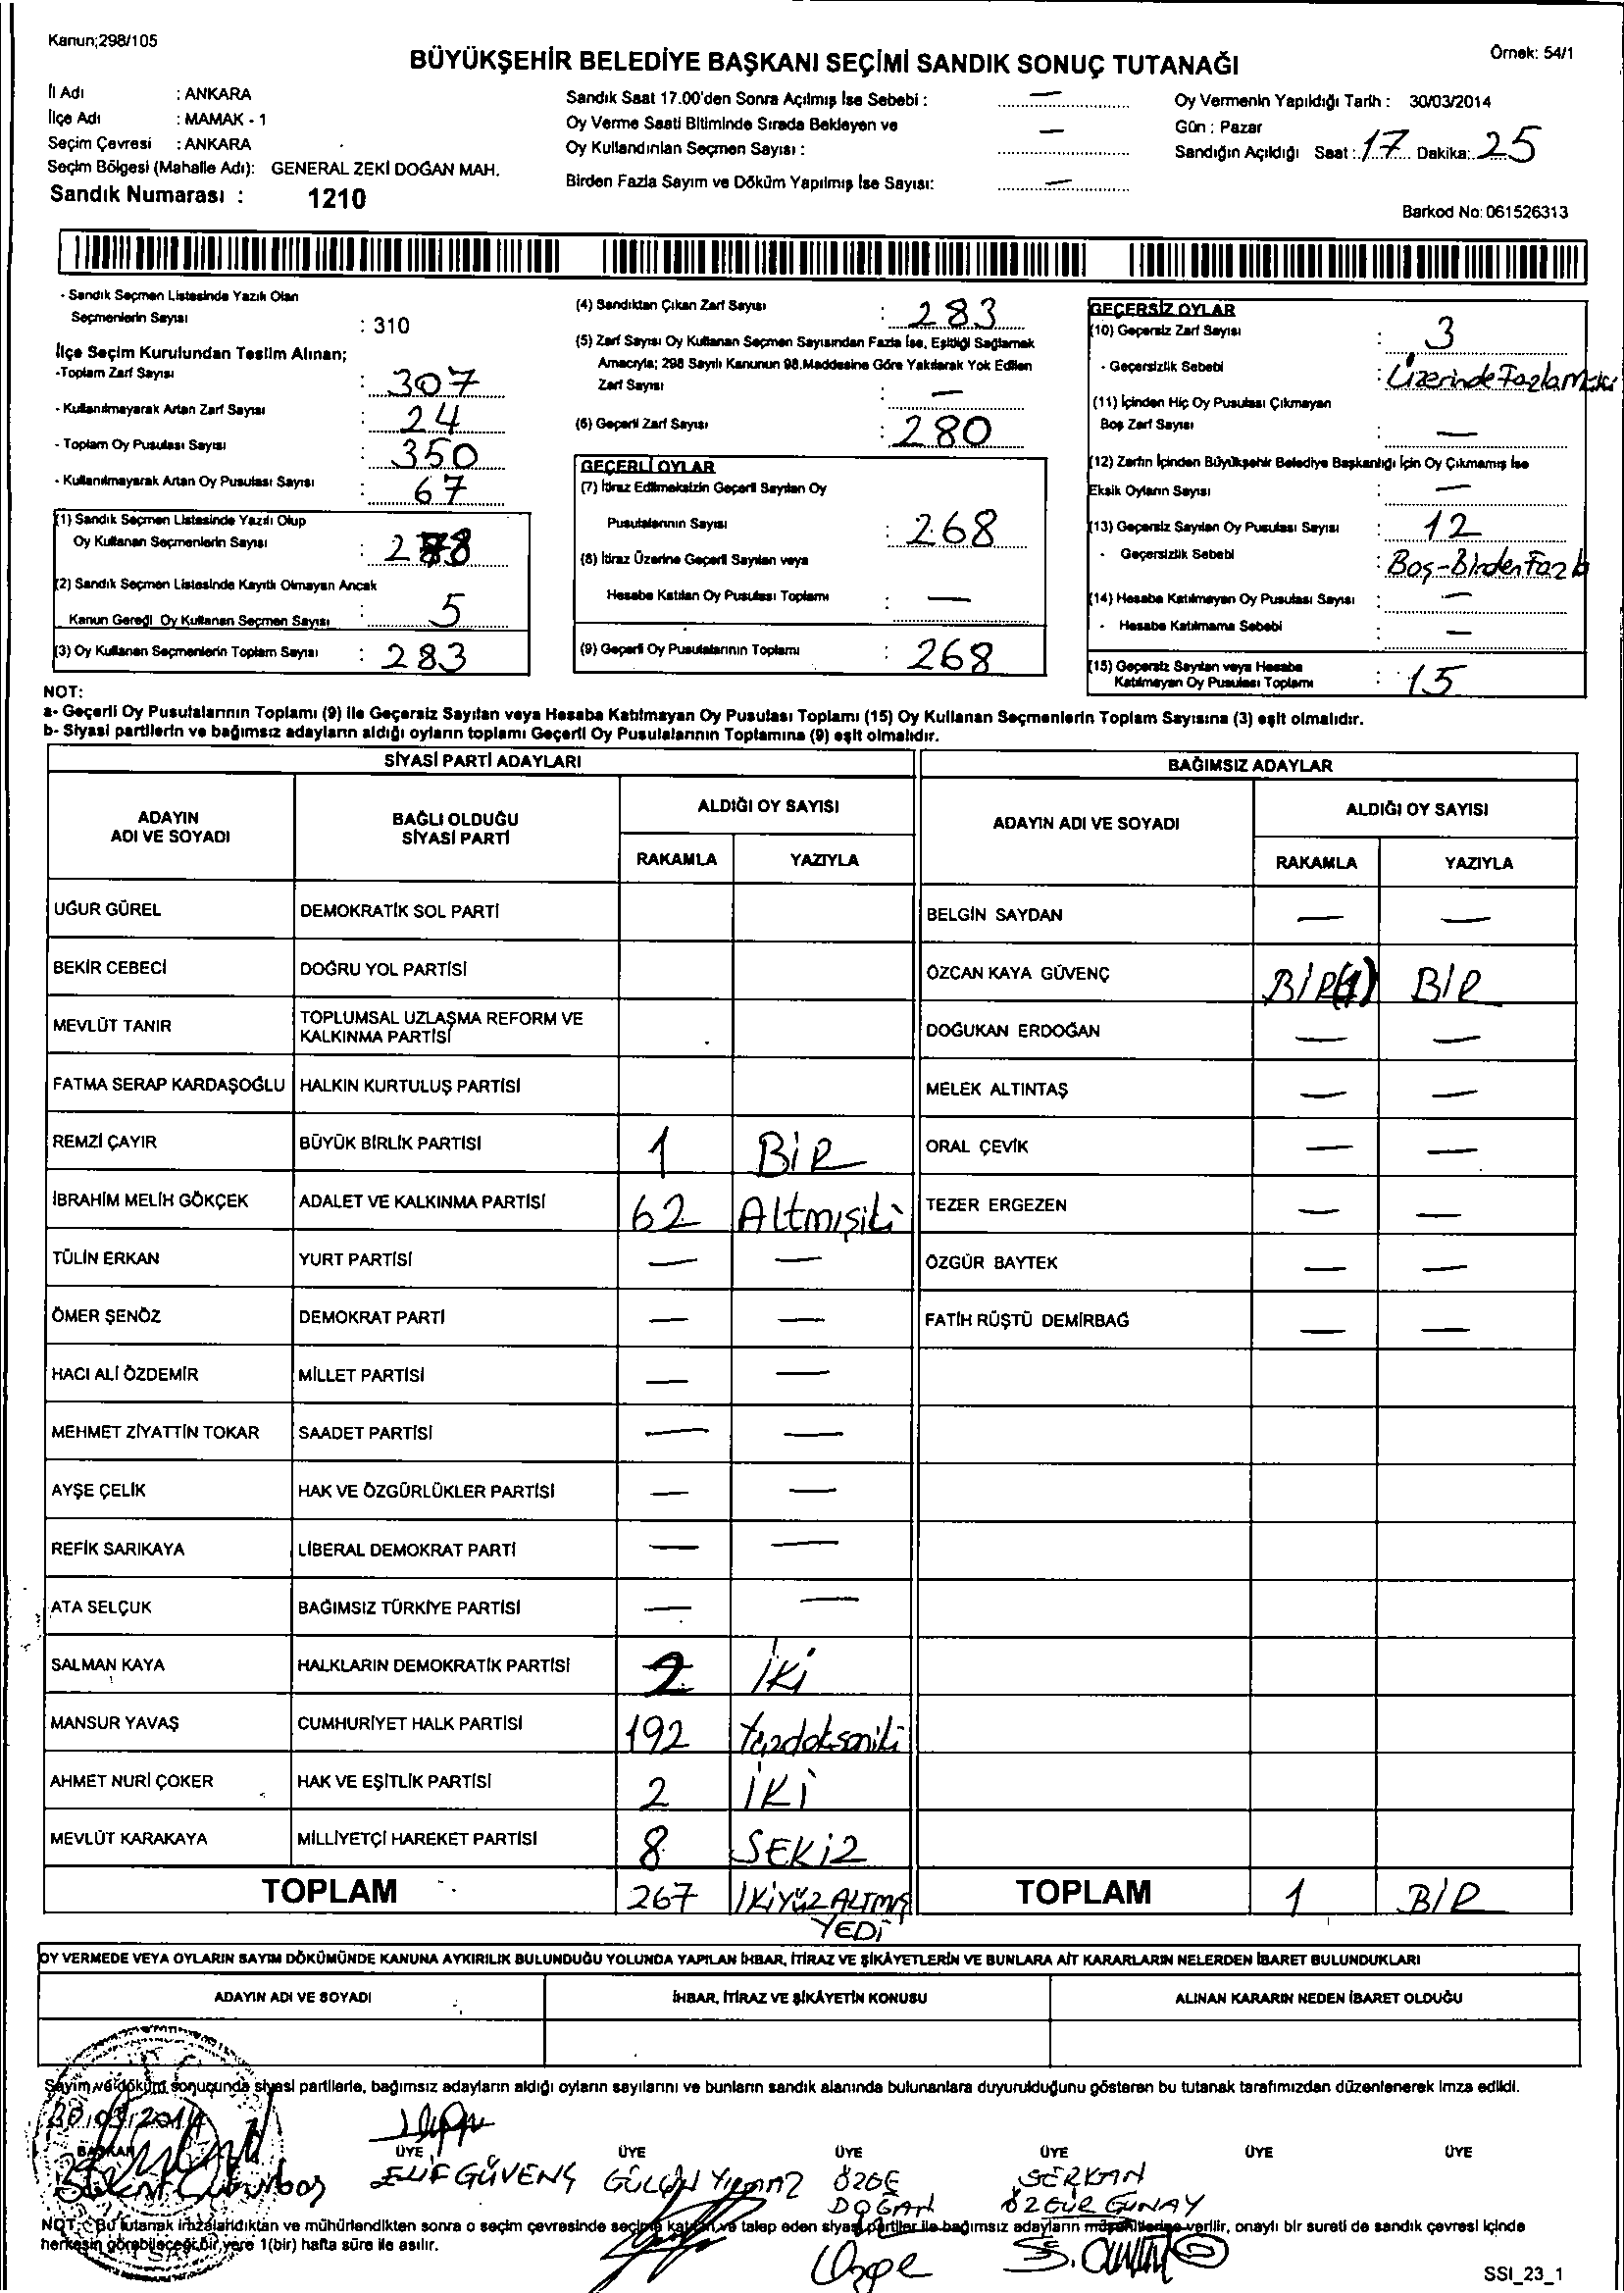 Kanun;298/105
Örnek: 54/1
BÜYÜKŞEHİR BELEDİYE BAŞKANI SEÇİMİ SANDIK SONUÇ TUTANAĞI
İl Adı : ANKARA
İlçe Adı : MAMAK - 1
Seçim Çevresi : ANKARA
Seçim Bölgesi (Mahalle Adı): GENERAL ZEKİ DOĞAN MAH.
Sandık Numarası : 1210
Sandık Saat 17.00'den Sonra Açılmış İse Sebebi : —
Oy Verme Saati Bitiminde Sırada Bekleyen ve
Oy Kullandırılan Seçmen Sayısı : —
Birden Fazla Sayım ve Döküm Yapılmış İse Sayısı: —
Oy Vermenin Yapıldığı Tarih : 30/03/2014
Gün : Pazar
Sandığın Açıldığı Saat : 17 Dakika: 25
Barkod No: 061526313
- Sandık Seçmen Listesinde Yazılı Olan
Seçmenlerin Sayısı : 310
İlçe Seçim Kurulundan Teslim Alınan;
-Toplam Zarf Sayısı : 307
- Kullanılmayarak Artan Zarf Sayısı : 24
- Toplam Oy Pusulası Sayısı : 350
- Kullanılmayarak Artan Oy Pusulası Sayısı : 67
(1) Sandık Seçmen Listesinde Yazılı Olup
Oy Kullanan Seçmenlerin Sayısı : 278
(2) Sandık Seçmen Listesinde Kayıtlı Olmayan Ancak
Kanun Gereği Oy Kullanan Seçmen Sayısı : 5
(3) Oy Kullanan Seçmenlerin Toplam Sayısı : 283
(4) Sandıktan Çıkan Zarf Sayısı : 283
(5) Zarf Sayısı Oy Kullanan Seçmen Sayısından Fazla İse, Eşitliği Sağlamak
Amacıyla; 298 Sayılı Kanunun 98.Maddesine Göre Yakılarak Yok Edilen
Zarf Sayısı : —
(6) Geçerli Zarf Sayısı : 280
GEÇERLİ OYLAR
(7) İtiraz Edilmeksizin Geçerli Sayılan Oy
Pusulalarının Sayısı : 268
(8) İtiraz Üzerine Geçerli Sayılan veya
Hesaba Katılan Oy Pusulası Toplamı : —
(9) Geçerli Oy Pusulalarının Toplamı : 268
GEÇERSİZ OYLAR
(10) Geçersiz Zarf Sayısı : 3
- Geçersizlik Sebebi : Üzerinde Fazla
(11) İçinden Hiç Oy Pusulası Çıkmayan
Boş Zarf Sayısı : —
(12) Zarfın İçinden Büyükşehir Belediye Başkanlığı İçin Oy Çıkmamış İse
Eksik Oyların Sayısı : —
(13) Geçersiz Sayılan Oy Pusulası Sayısı : 12
- Geçersizlik Sebebi : Boş-Birden Fazla
(14) Hesaba Katılmayan Oy Pusulası Sayısı : —
- Hesaba Katılmama Sebebi : —
(15) Geçersiz Sayılan veya Hesaba
Katılmayan Oy Pusulası Toplamı : 15
NOT:
a- Geçerli Oy Pusulalarının Toplamı (9) ile Geçersiz Sayılan veya Hesaba Katılmayan Oy Pusulası Toplamı (15) Oy Kullanan Seçmenlerin Toplam Sayısına (3) eşit olmalıdır.
b- Siyasi partilerin ve bağımsız adayların aldığı oyların toplamı Geçerli Oy Pusulalarının Toplamına (9) eşit olmalıdır.
SİYASİ PARTİ ADAYLARI
ADAYIN ADI VE SOYADI
BAĞLI OLDUĞU SİYASİ PARTİ
ALDIĞI OY SAYISI
RAKAMLA YAZIYLA
UĞUR GÜREL DEMOKRATİK SOL PARTİ
BEKİR CEBECİ DOĞRU YOL PARTİSİ
MEVLÜT TANIR TOPLUMSAL UZLAŞMA REFORM VE
KALKINMA PARTİSİ
FATMA SERAP KARDAŞOĞLU HALKIN KURTULUŞ PARTİSİ
REMZİ ÇAYIR BÜYÜK BİRLİK PARTİSİ 1 BİR
İBRAHİM MELİH GÖKÇEK ADALET VE KALKINMA PARTİSİ 62 Altmışiki
TÜLİN ERKAN YURT PARTİSİ — —
ÖMER ŞENÖZ DEMOKRAT PARTİ — —
HACI ALİ ÖZDEMİR MİLLET PARTİSİ — —
MEHMET ZİYATTİN TOKAR SAADET PARTİSİ — —
AYŞE ÇELİK HAK VE ÖZGÜRLÜKLER PARTİSİ — —
REFİK SARIKAYA LİBERAL DEMOKRAT PARTİ — —
ATA SELÇUK BAĞIMSIZ TÜRKİYE PARTİSİ — —
SALMAN KAYA HALKLARIN DEMOKRATİK PARTİSİ 2 İKİ
MANSUR YAVAŞ CUMHURİYET HALK PARTİSİ 192 Yüzdoksaniki
AHMET NURİ ÇOKER HAK VE EŞİTLİK PARTİSİ 2 İKİ
MEVLÜT KARAKAYA MİLLİYETÇİ HAREKET PARTİSİ 8 SEKİZ
TOPLAM 267 İKİYÜZ ALTMIŞ
YEDİ
BAĞIMSIZ ADAYLAR
ADAYIN ADI VE SOYADI
ALDIĞI OY SAYISI
RAKAMLA YAZIYLA
BELGİN SAYDAN — —
ÖZCAN KAYA GÜVENÇ BİR(1) BİR
DOĞUKAN ERDOĞAN — —
MELEK ALTINTAŞ — —
ORAL ÇEVİK — —
TEZER ERGEZEN — —
ÖZGÜR BAYTEK — —
FATİH RÜŞTÜ DEMİRBAĞ — —
TOPLAM 1 BİR
OY VERMEDE VEYA OYLARIN SAYIM DÖKÜMÜNDE KANUNA AYKIRILIK BULUNDUĞU YOLUNDA YAPILAN İHBAR, İTİRAZ VE ŞİKÂYETLERİN VE BUNLARA AİT KARARLARIN NELERDEN İBARET BULUNDUKLARI
ADAYIN ADI VE SOYADI İHBAR, İTİRAZ VE ŞİKÂYETİN KONUSU ALINAN KARARIN NEDEN İBARET OLDUĞU
Sayım ve döküm sonucunda siyasi partilerle, bağımsız adayların aldığı oyların sayılarını ve bunların sandık alanında bulunanlara duyurulduğunu gösteren bu tutanak tarafımızdan düzenlenerek imza edildi.
30/03/2014
BAŞKAN ÜYE ÜYE ÜYE ÜYE ÜYE ÜYE
ELİF GÜVENÇ GÜLÇİN YILMAZ ÖZGE SERKAN
DOĞAN ÖZGÜR GÜNAY
NOT : Bu tutanak imzalandıktan ve mühürlendikten sonra o seçim çevresinde seçime katılan ve talep eden siyasi partiler ile bağımsız adayların müşahitlerine verilir, onaylı bir sureti de sandık çevresi içinde
herkesin görebileceği bir yere 1(bir) hafta süre ile asılır.
Özge
SSI_23_1